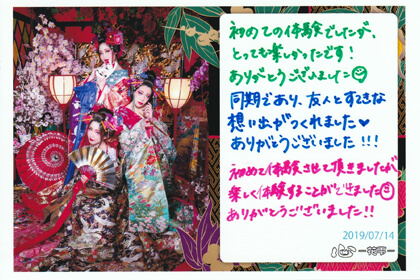 初めての体験でしたが、
とっても楽しかったです！
ありがとうございました
同期であり、友人とすてきな
想い出がつくれました♥
ありがとうございました!!!
初めて体験させて頂きましたが
楽しく体験することができました
ありがとうございました!!
2019/07/14
心 −花雫−